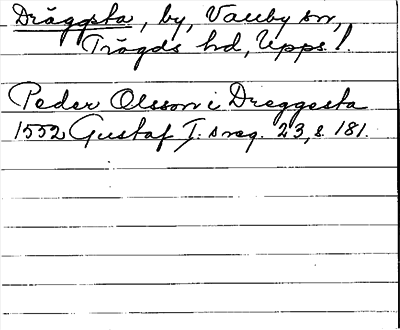 Dräggsta, by, Vauby sn,
Trögds hd, Upps l.
Peder Olsson i Dreggesta
1552 Gustaf I. s reg. 23, s. 181.